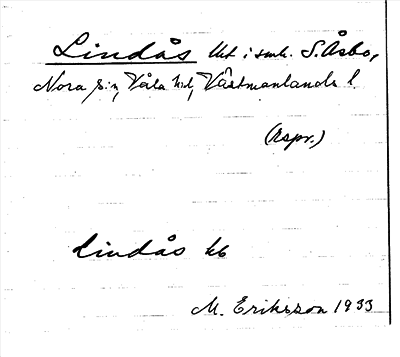 Lindås Ut i smh. S. Åsbo,
Nora s:n, Våla hd, Västmanlands l.
(Aspr.)
Lindås kb
M. Eriksson 1933